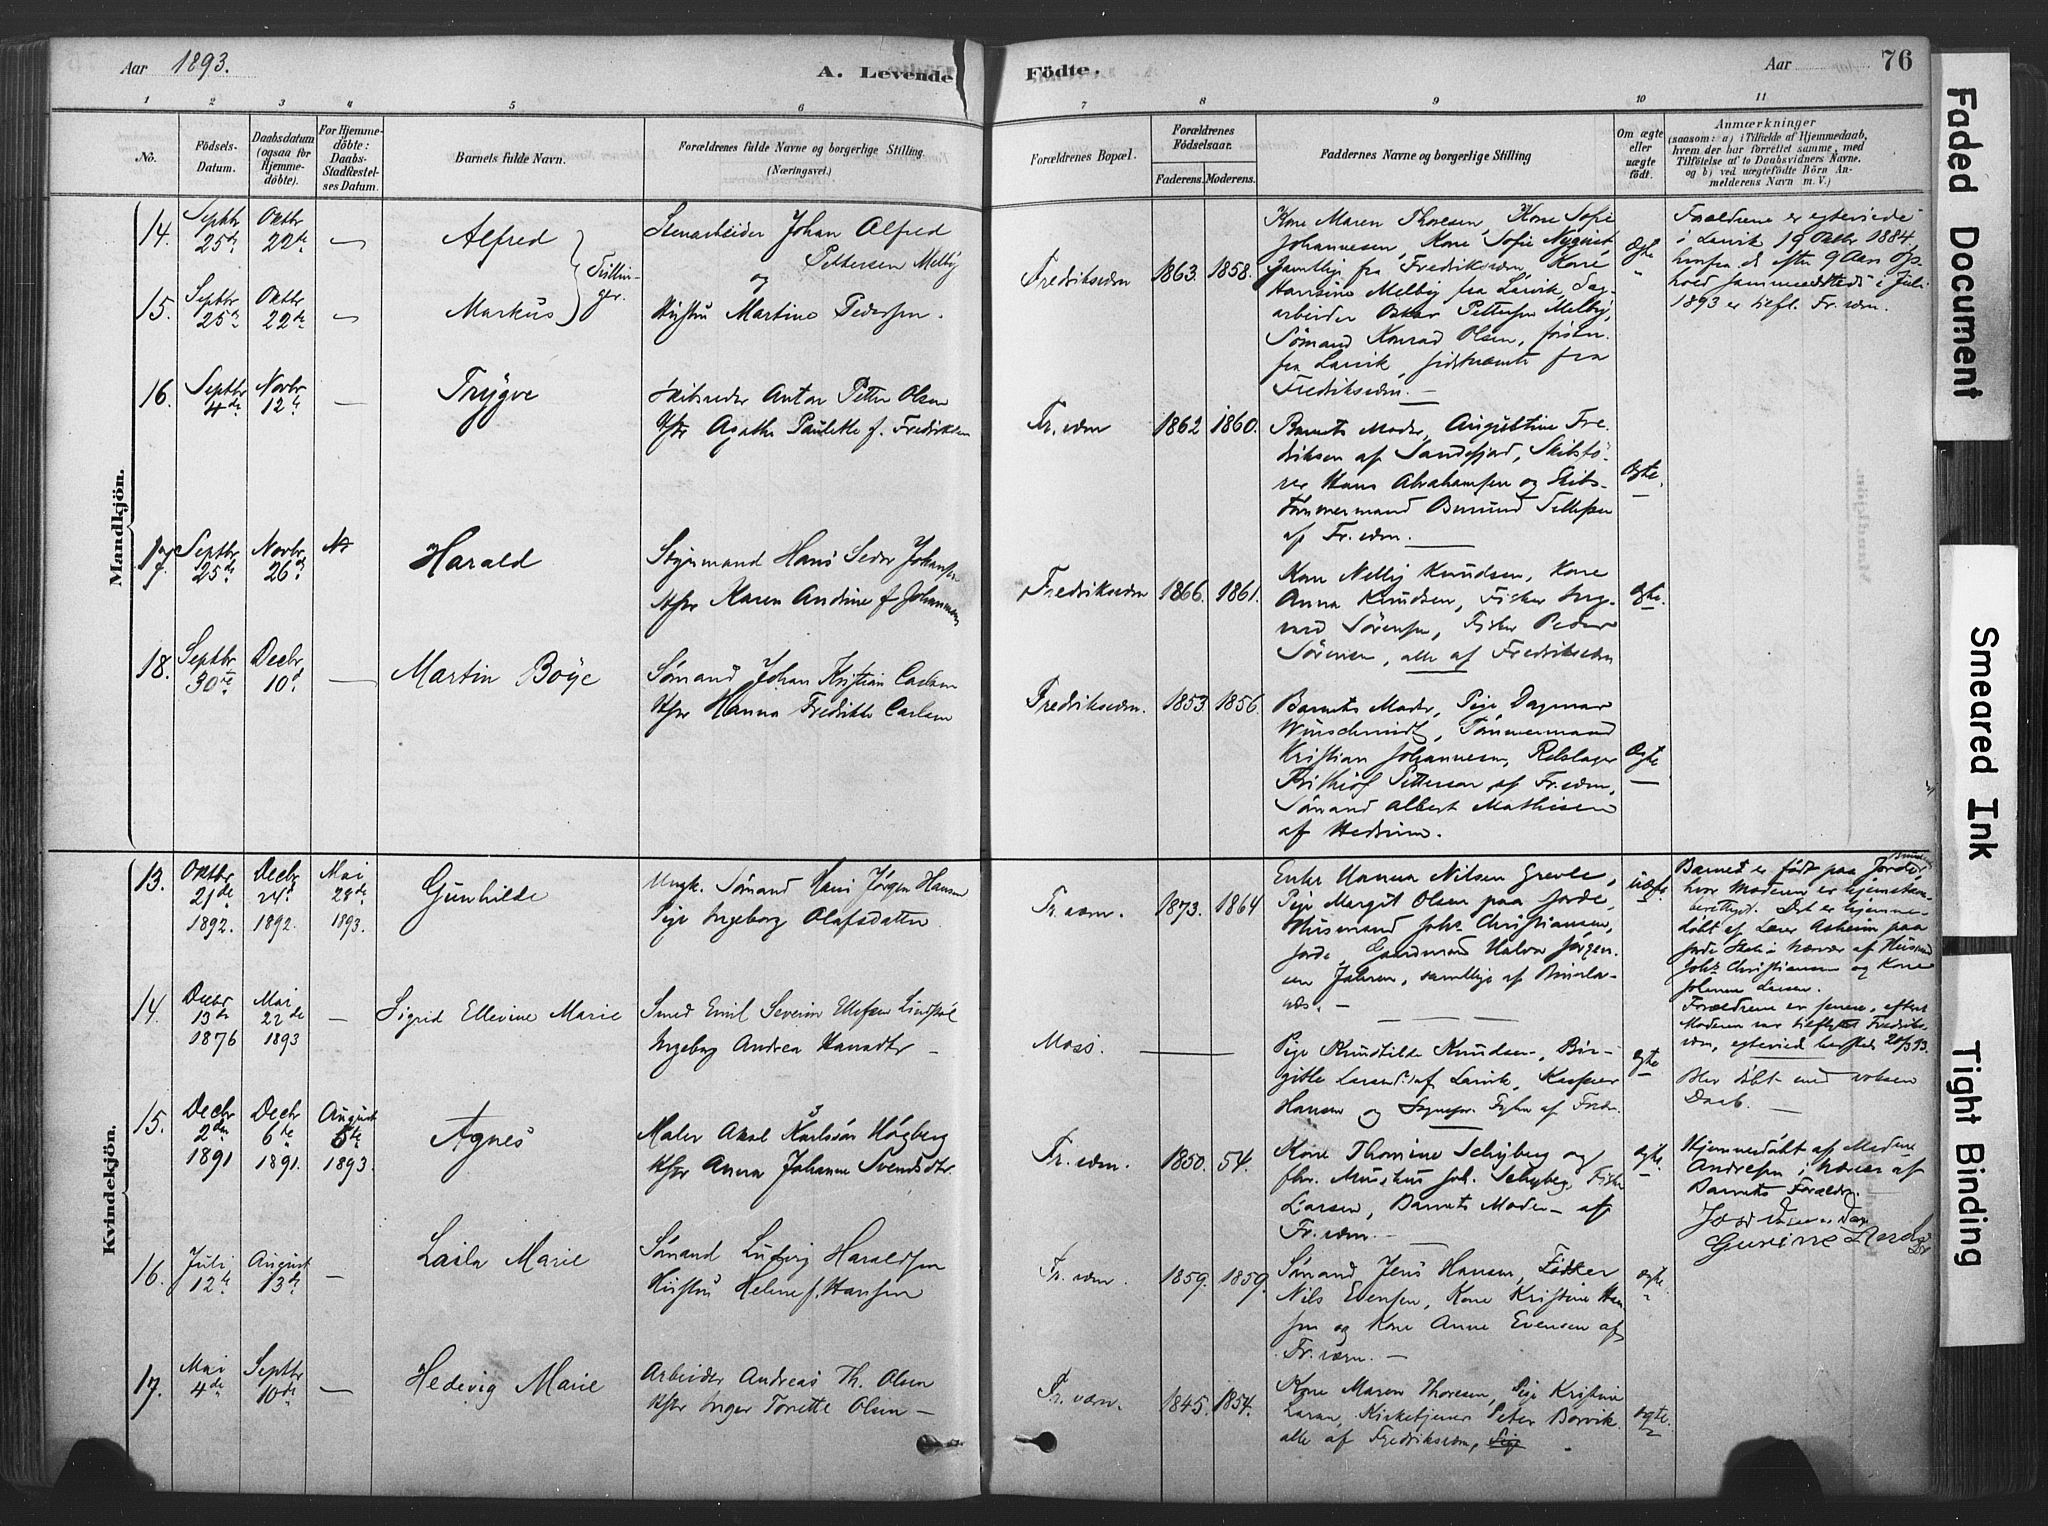 Aar 1893.
A. Levende Födte.
Aar
76
1 2 3 4 5 6 7 8 9 10 11
No.
Födsels-
Datum.
Daabsdatum
(ogsaa for
Hjemme-
döbte).
For Hjemme-
döbte:
Daabs-
Stadfæstel-
ses Datum.
Barnets fulde Navn.
Forældrenes fulde Navne og borgerlige Stilling.
(Næringsvei.)
Forældrenes Bopæl.
Forældrenes
Födselsaar.
Faderens. Moderens.
Faddernes Navne og borgerlige Stilling
Om ægte
eller
uægte
födt.
Anmærkninger
(saasom: a) i Tilfælde af Hjemmedaab,
hvem der har forrettet samme, med
Tilföielse af to Daabsvidners Navne.
og b) ved uægtefödte Börn An-
melderens Navn m. V.)
Mandkjön.
14.
Septbr
25de
Oktbr
22de
—
Alfred
Stenarbeider Johan Alfred
Pettersen Melby
og
15.
Septbr
25de
Oktbr
22de
—
Markus
Hustru Martine Pedersen.
Fredriksværn
1863. 1858.
Kone Maren Thoresen, Kone Sofie
Johannesen, Kone Sofie Nyqvist,
samtlige fra Fredriksværn, Kone
Hansine Melby fra Larvik, Sag-
arbeider Oskar Pettersen Melby,
Sømand Konrad Olsen,
fra Larvik, sidstnævnte fra
Fredriksværn.—
Ægte
Forældrene er egteviede
i Larvik 19 Oktbr 1884,
efter 9 Aars Op-
hold sammesteds i Juli
1893 er tilfl. Fr.værn.
16.
Septbr
4de
Novbr
12te
—
Trygve
Skibsreder Anton Petter Olsen
Hstr Agathe Paulette f. Fredriksen
Fr.værn
1862 1860.
Barnets Moder, Augustine Fre-
driksen af Sandefjord,
Hans Abrahamsen og Skibs-
tømmermand Tellefsen
af Fr.værn.—
Ægte.
17.
Septbr
25de
Novbr
26de
Harald
Styrmand Hans Johansen
Hstr Karen Andrine f. Johannesen
Fredriksværn
1866. 1861.
Kone Nelly Knudsen, Kone
Anna Knudsen, Fisker Ing-
vard Sørensen, Fisker Peder
Sörensen, alle af Fredriksværn
Ægte.
18.
Septbr
30te
Decbr
10de
—
Martin Böye
Sømand Johan Kristian Carlsen
Hstr Hanna Fredrikke Carlsen
Fredriksværn.
1853 1856.
Barnets Moder, Pige Dagmar
Winschmidt, Tømmermand
Kristian Johannesen, Rebslager
Frithiof Pettersen af Fr.værn,
Sømand Albert Mathisen
af Hedrum.
Ægte
Kvindekjön.
13.
Oktbr
21de
1892.
Decbr
24de
1892.
Mai
28de
1893.
Gunhilde
Ungk. Sømand Hans Jørgen Hansen
Pige Ingeborg Olafsdatter
Fr.værn.
1873. 1864
Enke Hanna Nilsen Grevle,
Pige Margit Olsen paa Jorde,
Husmand Johs. Christiansen,
Jorde, Gaardmand Halvor Jørgen-
sen Jahren, samtlige af Brunla-
næs.—
uægte.
Barnet er født paa Jorde,
hvor Moderen er hjemstavns-
berettiget. Det er hjemme-
døbt af Lærer Asheim paa
Jorde Skole i Nærvær af Husmand
Johs. Christiansen og Kone
Larsen.
Forældrene er senere, efterat
Moderen var tilflyttet Fredriks-
værn, egteviet 20/5 93.
14.
Decbr
13de
1876
Mai
22de
1893
—
Sigrid Ellevine Marie
Smed Emil Severin Ulefsen Lindskol
Ingeborg Andrea Hansdtr —
Moss.
Pige Knudtilde Knudsen, Bir-
gitte Larsen af Larvik, Kasper
Hansen og af Fredr.
ægte
Blev døbt med voksen
Daab.—
15.
Decbr
2den
1891
Decbr
6te
1891.
August
5te
1893.
Agnes
Maler Axel Karlsson Høgberg
Hstr Anna Johanne Svendsdtr.
Fr.værn.
1850. 54.
Kone Thomine Schyberg og
Joh. Schyberg, Fisker
Larsen, Barnets Moder — af
Fr.værn.—
ægte.
Hjemmedøbt af
Andresen i Nærvær af
Barnets Forældre.
Jordmoder
16.
Juli
12te
August
13de
—
Laila Marie
Sømand Ludvig Haraldsen
Hustru Helene f. Hansen
Fr.værn.
1859. 1859.
Sømand Jens Hansen,
Nils Evensen, Kone Kristine Han-
sen og Kone Anne Evensen af
Fr.værn.—
ægte.
17.
Mai
4de
Septbr
10de
—
Hedevig Marie
Arbeider Andreas Th. Olsen
Hstr Inger Tonette Olsen —
Fr.værn.
1845. 1854.
Kone Maren Thoresen, Pige Kristine
Larsen, Kirketjener Peter Borvik
alle af Fredriksværn,
ægte.
Faded Document
Smeared Ink
Tight Binding